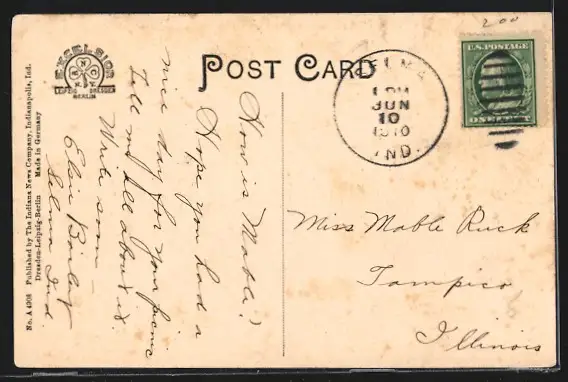 200
POST CARD
EXCELSIOR
N.Y.
LEIPZIG DRESDEN
BERLIN
SELMA
1 PM
JUN
10
1910
IND.
U.S. POSTAGE
ONE CENT
How is Mable?
Hope you had a
nice day for your picnic
Tell me all about it.
Write soon —
Elsie
Selma Ind
Miss Mable Ruck
Tampico
Illinois
No. A 4908 Published by The Indiana News Company, Indianapolis, Ind.
Dresden-Leipzig-Berlin Made in Germany